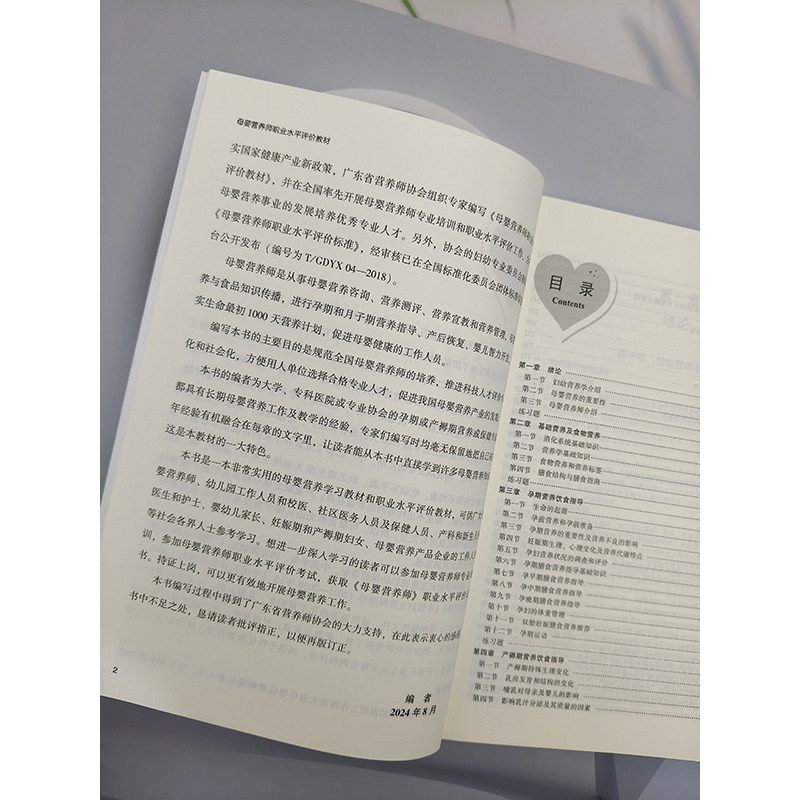 母婴营养师职业水平评价教材
实国家健康产业新政策，广东省营养师协会组织专家编写《母婴营养师职
评价教材》，并在全国率先开展母婴营养师专业培训和职业水平评价工作，
母婴营养事业的发展培养优秀专业人才。另外，协会的妇幼专业委员会
《母婴营养师职业水平评价标准》，经审核已在全国标准化委员会团体标准
台公开发布（编号为 T/GDYX 04—2018）。
母婴营养师是从事母婴营养咨询、营养测评、营养宣教和营养管理，
养与食品知识传播，进行孕期和月子期营养指导、产后恢复、婴儿智力开
实生命最初 1000 天营养计划，促进母婴健康的工作人员。
编写本书的主要目的是规范全国母婴营养师的培养，推进科技人才评价
化和社会化，方便用人单位选择合格专业人才，促进我国母婴营养产业的发展。
本书的编者为大学、专科医院或专业协会的孕期或产褥期营养或保健
都具有长期母婴营养工作及教学的经验，专家们编写时均毫无保留地把自己
年经验有机融合在每章的文字里，让读者能从本书中直接学到许多母婴营养
这是本教材的一大特色。
本书是一本非常实用的母婴营养学习教材和职业水平评价教材，可供广
婴营养师、幼儿园工作人员和校医、社区医务人员及保健人员、产科和新生
医生和护士、婴幼儿家长、妊娠期和产褥期妇女、母婴营养产品企业的工作人
等社会各界人士参考学习。想进一步深入学习的读者可以参加母婴营养师专业
训，参加母婴营养师职业水平评价考试，获取《母婴营养师》职业水平评价
书。持证上岗，可以更有效地开展母婴营养工作。
本书编写过程中得到了广东省营养师协会的大力支持，在此表示衷心的感谢
书中不足之处，恳请读者批评指正，以便再版订正。
编 者
2024 年 8 月
2
目 录
Contents
第一章 绪论
第一节 妇幼营养学介绍
第二节 母婴营养的重要性
第三节 母婴营养师介绍
练习题
第二章 基础营养及食物营养
第一节 消化系统基础知识
第二节 营养学基础知识
第三节 食物营养和营养标签
第四节 膳食结构与膳食指南
练习题
第三章 孕期营养饮食指导
第一节 生命的起源
第二节 孕前营养和孕前准备
第三节 孕期营养的重要性及营养不良的影响
第四节 妊娠期生理、心理变化及营养代谢特点
第五节 孕妇营养状况的调查和评价
第六节 孕期膳食营养指导基础知识
第七节 孕早期膳食营养指导
第八节 孕中期膳食营养指导
第九节 孕晚期膳食营养指导
第十节 孕妇的体重管理
第十一节 双胎妊娠膳食营养推荐
第十二节 孕期运动
练习题
第四章 产褥期营养饮食指导
第一节 产褥期特殊生理变化
第二节 乳房发育和结构的变化
第三节 哺乳对母亲及婴儿的影响
第四节 影响乳汁分泌及其质量的因素